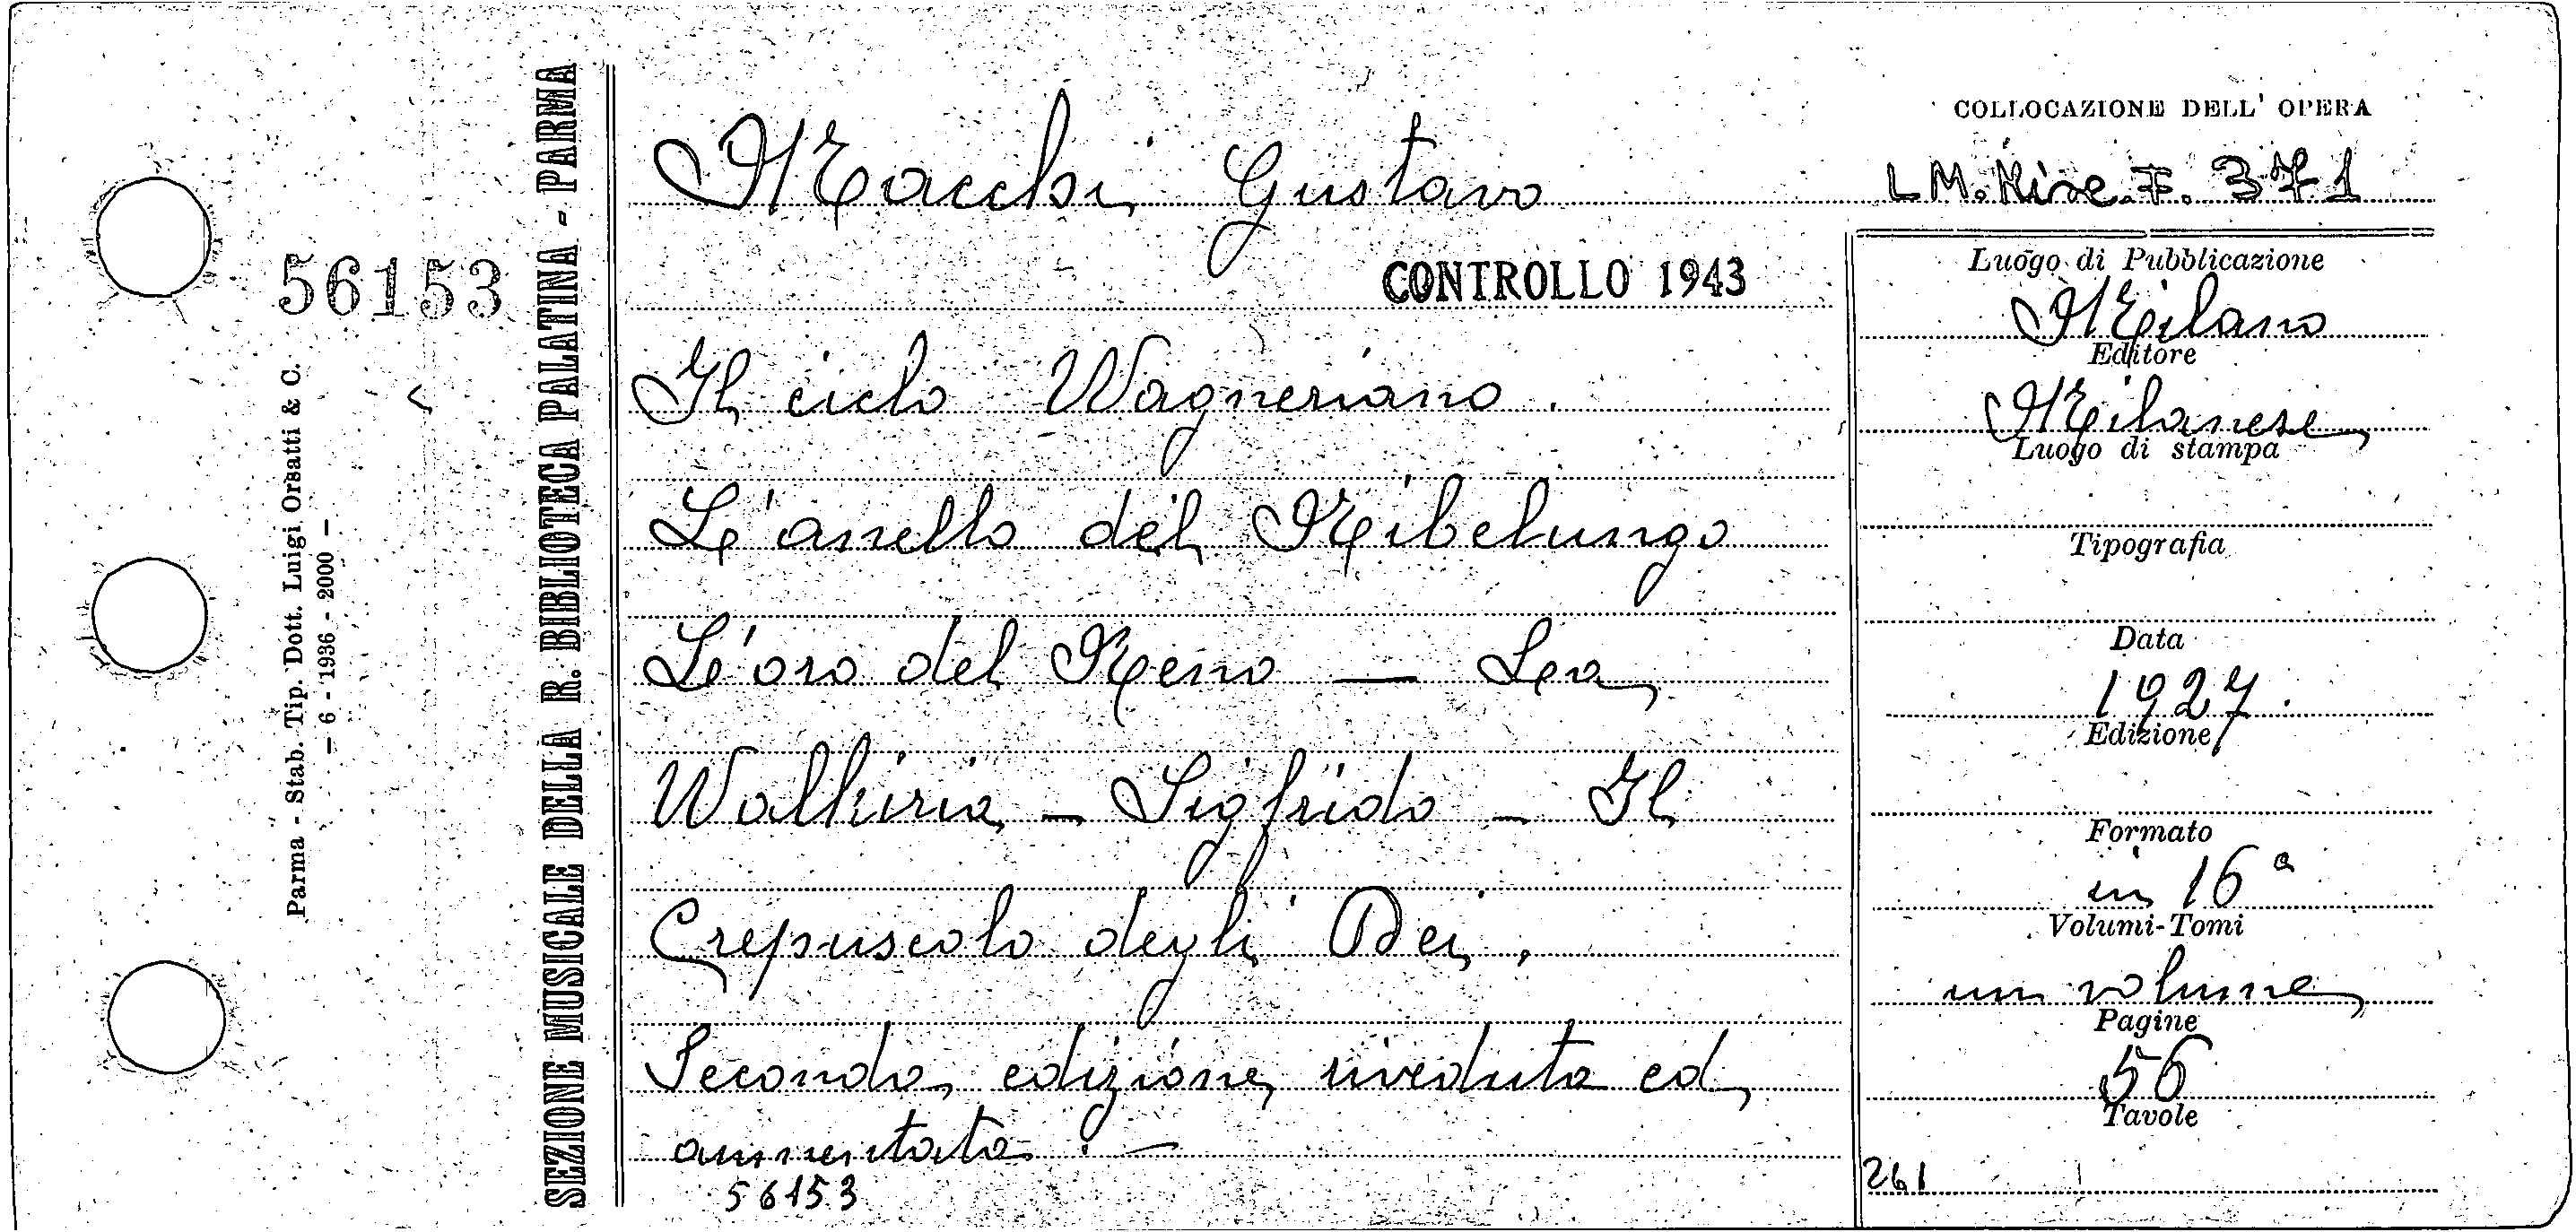 56153
Parma - Stab. Tip. Dott. Luigi Orsatti & C.
— 6 - 1936 - 2000 —
SEZIONE MUSICALE DELLA R. BIBLIOTECA PALATINA - PARMA
Macchi Gustavo
CONTROLLO 1943
Il ciclo Wagneriano.
L'anello del Nibelungo
L'oro del Reno — La
Walkiria — Sigfrido — Il
Crepuscolo degli Dei.
Seconda edizione riveduta ed
aumentata. —
56153
COLLOCAZIONE DELL' OPERA
LM. Misc. F. 371
Luogo di Pubblicazione
Milano
Editore
Milanese
Luogo di stampa
Tipografia
Data
1927.
Edizione
Formato
in 16°
Volumi-Tomi
un volume
Pagine
56
Tavole
261